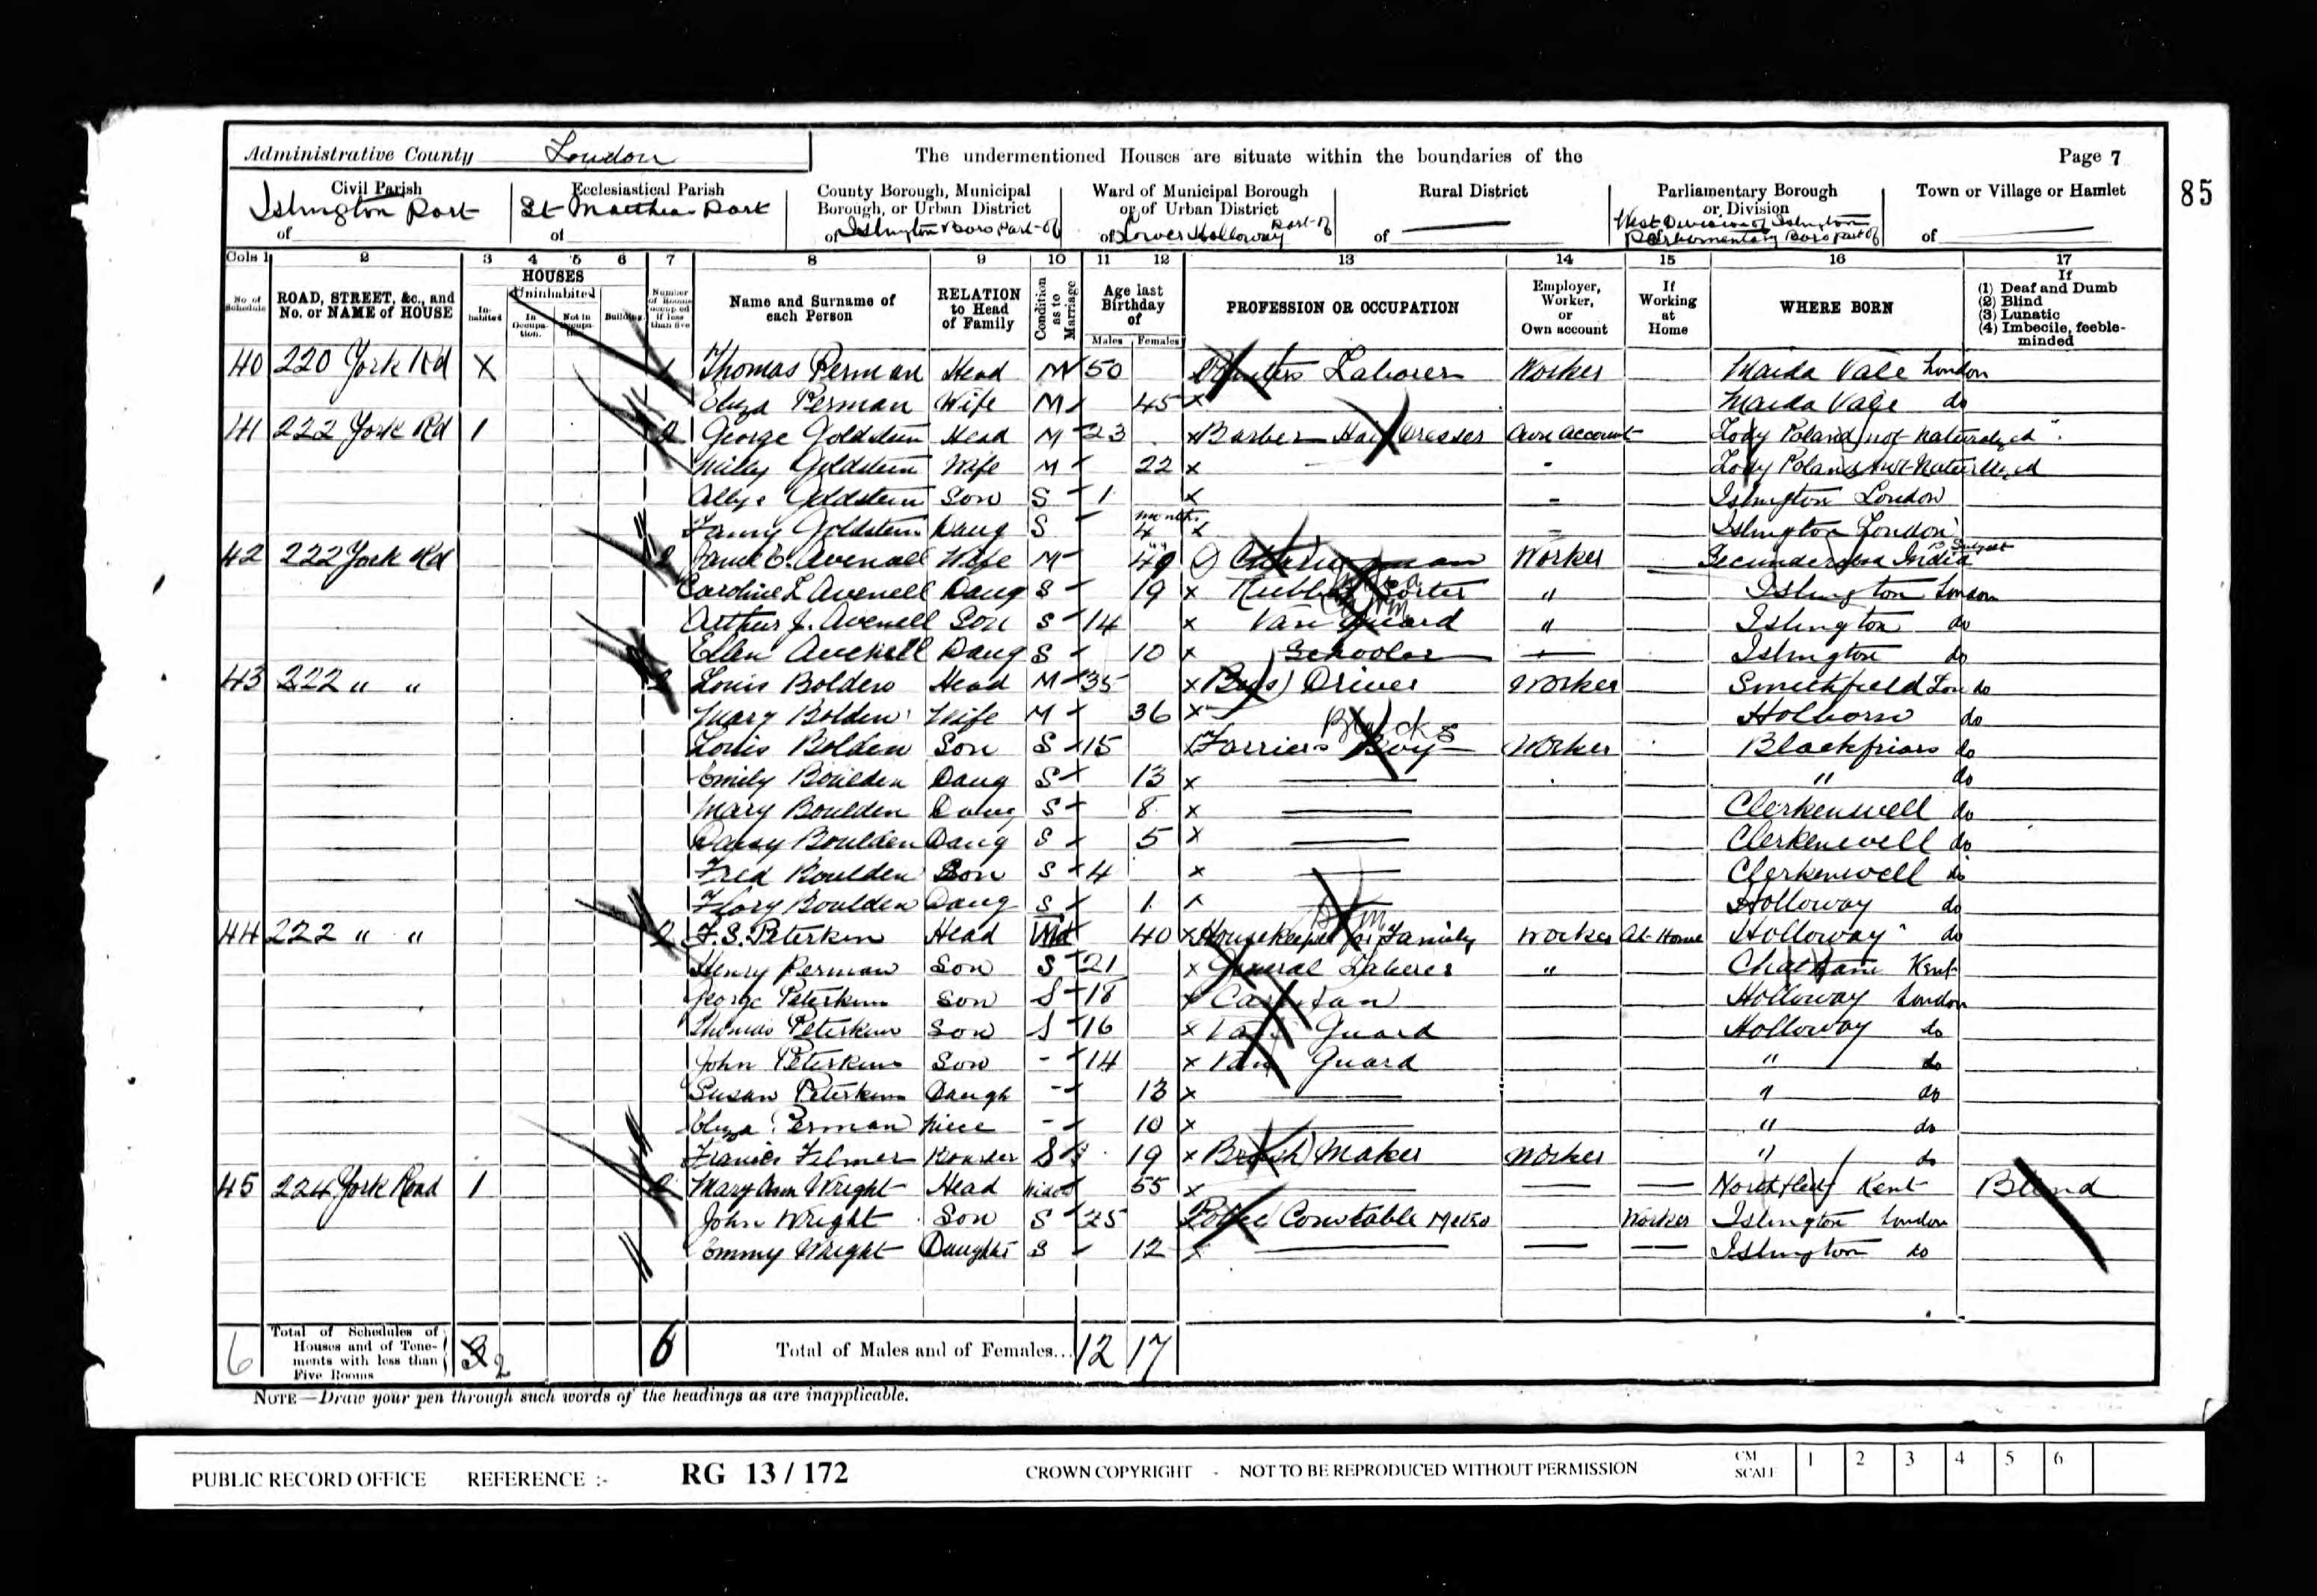 Administrative County London The undermentioned Houses are situate within the boundaries of the Page 7
85
Civil Parish Ecclesiastical Parish County Borough, Municipal Borough, or Urban District Ward of Municipal Borough or of Urban District Rural District Parliamentary Borough or Division Town or Village or Hamlet
of Islington Part of St Matthew Part of Islington Boro Part of of Lower Holloway Part of of West Division of Islington Parliamentary Boro Part of of
Cols 1 2 3 4 5 6 7 8 9 10 11 12 13 14 15 16 17
No of Schedule ROAD, STREET, &c., and No. or NAME of HOUSE HOUSES Inhabited Uninhabited In Occupation. Not in Occupation Building Number of Rooms occupied if less than five Name and Surname of each Person RELATION to Head of Family Condition as to Marriage Age last Birthday of Males Females PROFESSION OR OCCUPATION Employer, Worker, or Own account If Working at Home WHERE BORN If (1) Deaf and Dumb (2) Blind (3) Lunatic (4) Imbecile, feeble-minded
40 220 York Rd X 1 Thomas Perman Head M 50 Laborer Worker Maida Vale London
Eliza Perman Wife M 45 x Maida Vale do
41 222 York Rd 1 2 George Goldstein Head M 23 x Barber Hair Dresser Own Account Lody Poland not Naturalized
Milly Goldstein Wife M 22 x Lody Poland not Naturalized
Goldstein Son S 1 x Islington London
Fanny Goldstein Daug S 4 months x Islington London
42 222 York Rd 2 E. Avenell Wife M 49 Worker Secunderabad India B Subject
Caroline L Avenell Daug S 19 x Sorter " Islington London
Arthur J. Avenell Son S 14 x Van Guard " Islington do
Ellen Avenell Daug S 10 x Schooler Islington do
43 222 " " 2 Louis Bolden Head M 35 x Bus Driver Worker Smithfield Lon do
Mary Bolden Wife M 36 x Holborn do
Louis Bolden Son S 15 x Farriers Boy Blacks Worker Blackfriars do
Emily Boulden Daug S 13 x " do
Mary Boulden Daug S 8 x Clerkenwell do
Daisy Boulden Daug S 5 x Clerkenwell do
Fred Boulden Son S 4 x Clerkenwell do
Flory Boulden Daug S 1 x Holloway do
44 222 " " 2 F. S. Peterken Head Wid 40 x Housekeeper for Family Worker At Home Holloway do
Henry Perman Son S 21 x General Laborer " Chatham Kent
George Peterken Son S 18 x Carman Holloway London
Thomas Peterken Son S 16 x Van Guard Holloway do
John Peterken Son - 14 x Van Guard " do
Susan Peterken Daugh - 13 x " do
Eliza Perman Niece - 10 x " do
Frances Filmer Boarder S 19 x Brush Maker Worker " do
45 224 York Road 1 2 Mary Ann Wright Head Widow 55 x Northfleet Kent Blind
John Wright Son S 25 Police Constable Metro Worker Islington London
Emmy Wright Daughter S 12 x Islington do
6 Total of Schedules of Houses and of Tenements with less than Five Rooms 3 2 6 Total of Males and of Females... 12 17
NOTE—Draw your pen through such words of the headings as are inapplicable.
PUBLIC RECORD OFFICE REFERENCE :- RG 13 / 172 CROWN COPYRIGHT - NOT TO BE REPRODUCED WITHOUT PERMISSION CM SCALE 1 2 3 4 5 6